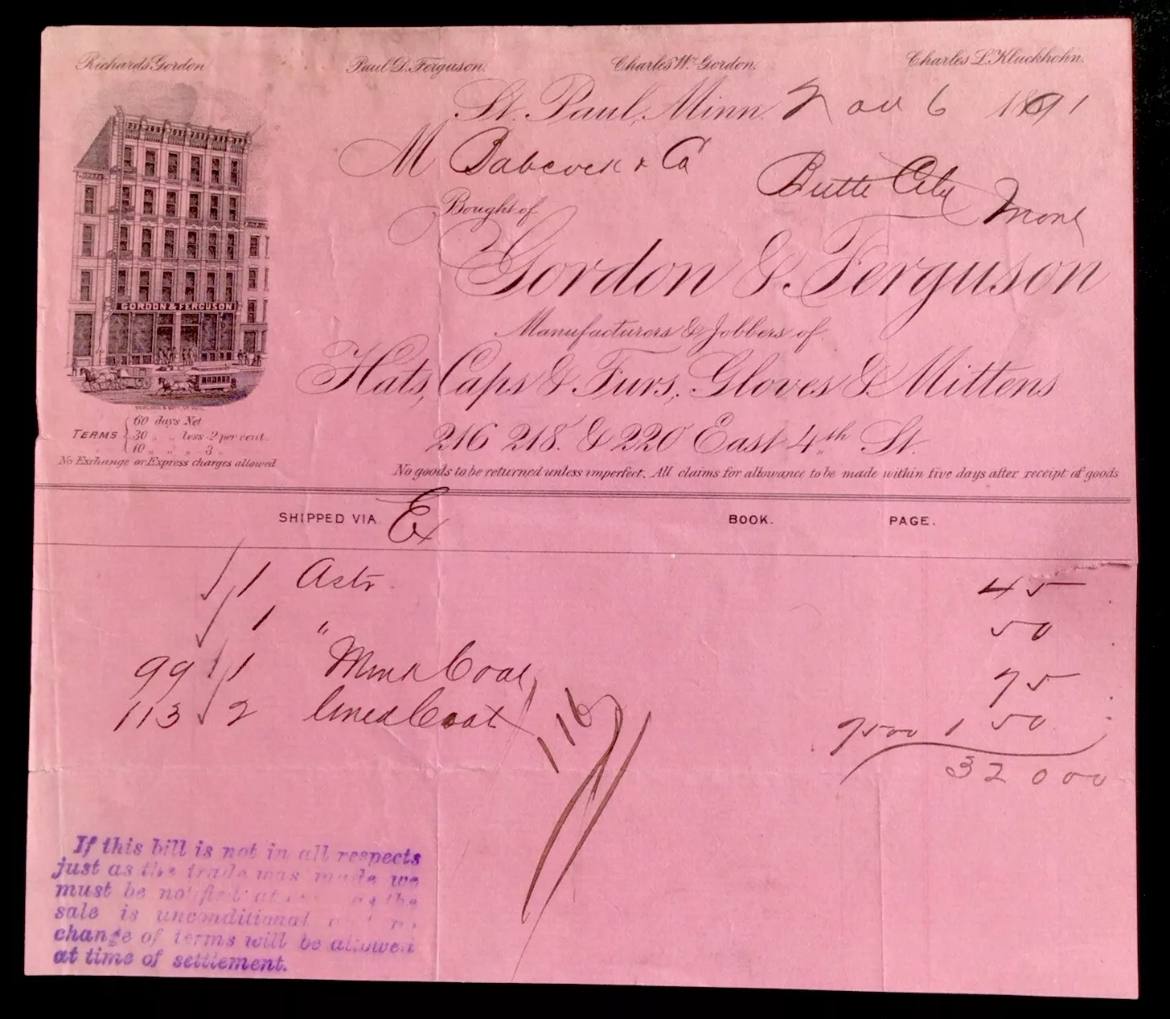 Richards Gordon Paul D. Ferguson. Charles W. Gordon. Charles L. Kluckhohn.
St. Paul, Minn. Nov 6 1891
M Babcock & Co Butte City Mont
Bought of
Gordon & Ferguson
GORDON & FERGUSON
Manufacturers & Jobbers of
Hats, Caps & Furs, Gloves & Mittens
216 218. & 220 East 4th St.
TERMS { 60 days Net
30 " " less 2 per cent.
10 " " " 3 "
No Exchange or Express charges allowed
No goods to be returned unless imperfect. All claims for allowance to be made within five days after receipt of goods
SHIPPED VIA Ex BOOK. PAGE.
1 Astr. 45
1 " 50
99 1 " Mink Coat 75
113 2 lined Coat 7500 1 50
116
320 00
If this bill is not in all respects
just as the trade was made we
must be notified at as the
sale is unconditional
change of terms will be allowed
at time of settlement.